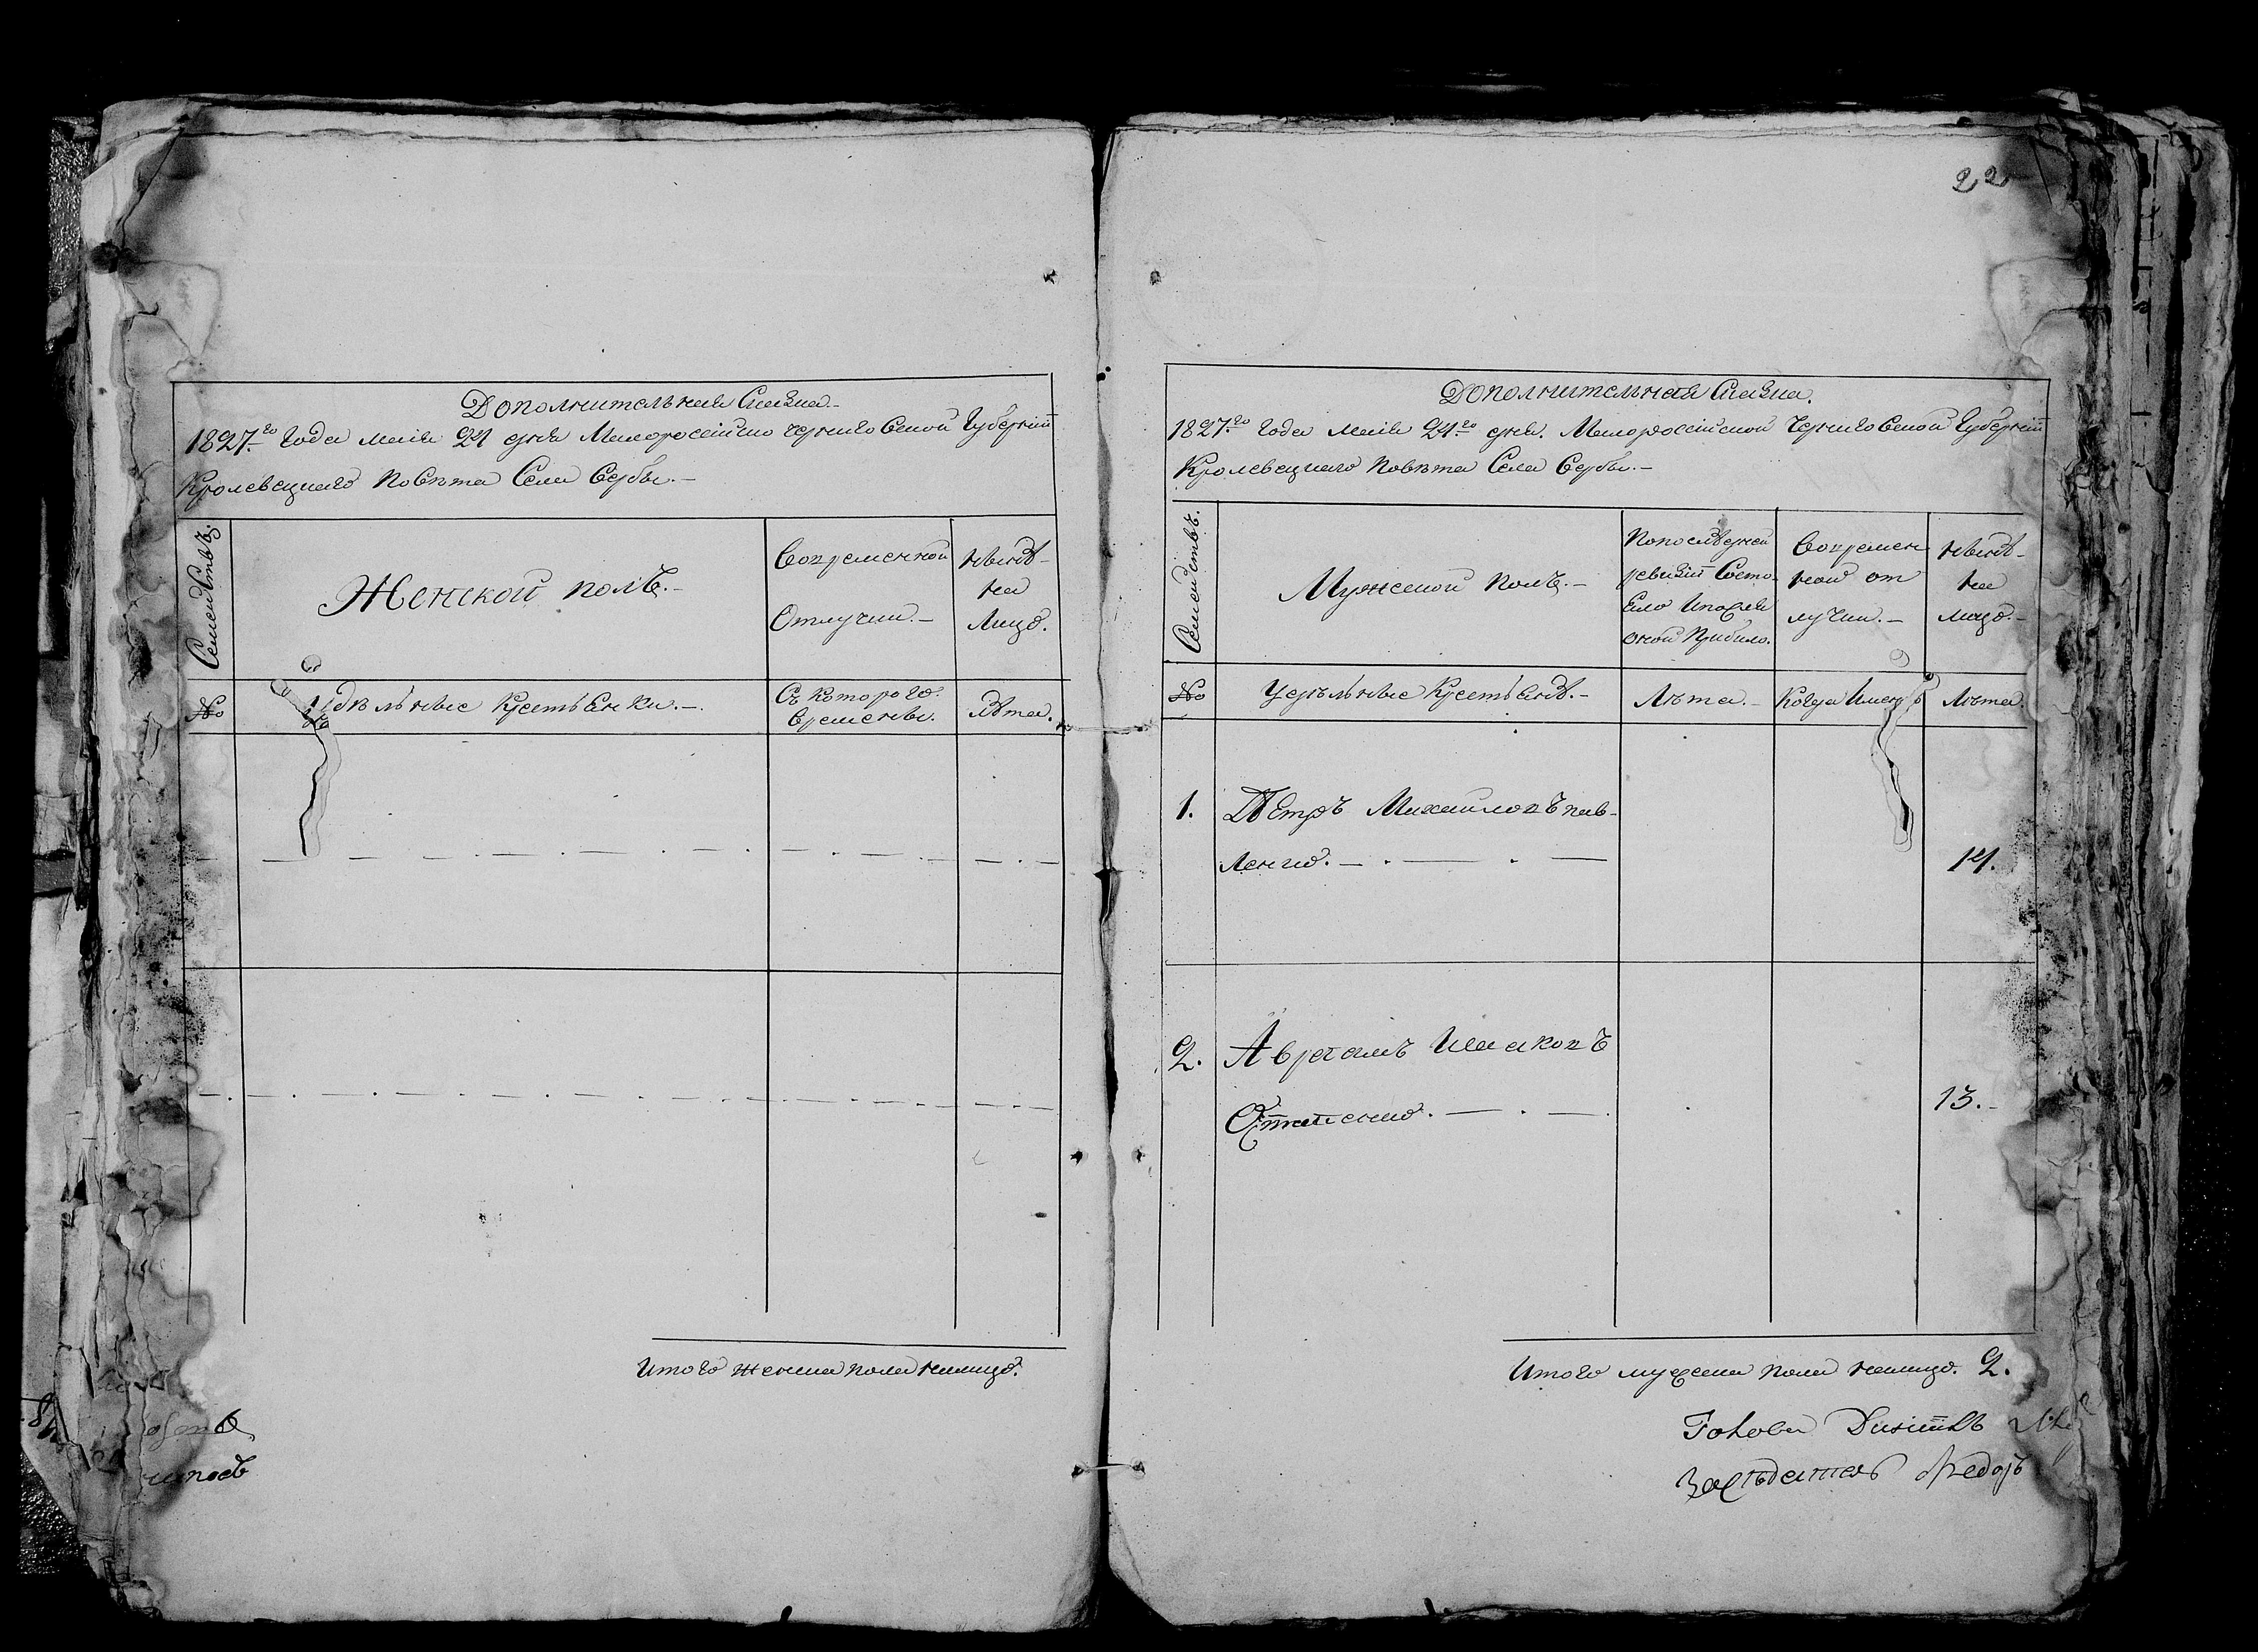 Дополнительная Сказка.-
1827.го Года маия 24 дня Малоросійско Черниговской Губерніи
Кролевецкаго Повѣта Села Сербы.-
Семействъ.
Женской полъ.-
Вовременной
Отлучки.-
Нынѣ-
на
Лицо.
№
Удѣльные Крестьянки.-
Съ котораго
Времяны.
Лѣта.
Итого женска пола налицо.
22
Дополнительная Сказка.
1827.го Года маия 24.го дня. Малоросійской Черниговской Губерніи
Кролевецкаго Повѣта Села Сербы.-
Семействъ.
Мужеской полъ.-
Попоследней
ревизіи Состо-
яло Ипосля
оной Прибыло.
Вовремен
ной от
лучки.-
Нынѣ-
на
лицо.-
№
Удѣльные Крестьяне.-
Лѣта.-
Когда Именно
Лѣта.
1.
Петръ Михайловъ пав-
ленко.
14.
2.
Аврамъ Исаковъ
13.-
Итого мужеска пола налицо. 2.
Голова
Засѣдатель Федоръ